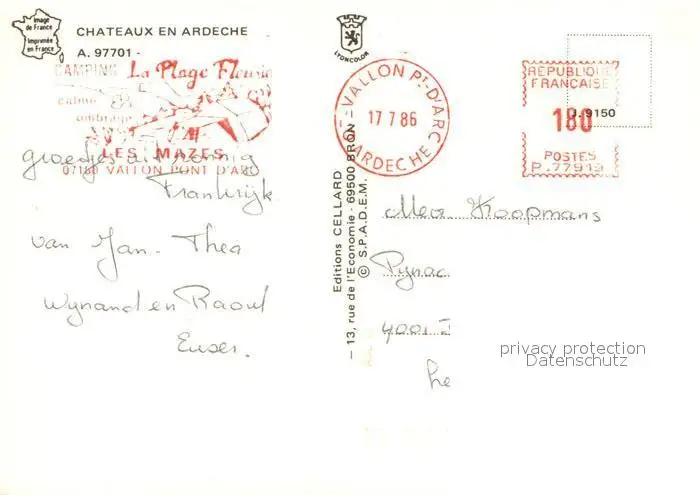 Image
de France
Imprimée
en France
CHATEAUX EN ARDECHE
A. 97701 -
CAMPING La Plage Fleurie
calme
ombrage
LES MAZES
07150 VALLON PONT D'ARC
groetjes uit zonnig
Frankrijk
van Jan - Thea
Wynand en Raoul
LYONCOLOR
VALLON Pt-D'ARC
17 7 86
ARDECHE
Editions CELLARD
— 13, rue de l'Economie - 69500 BRON —
© S.P.A.D.E.M.
REPUBLIQUE
FRANCAISE
180
POSTES
P.77919
J. 9150
Koopmans
Pynac
4001
he
privacy protection
Datenschutz